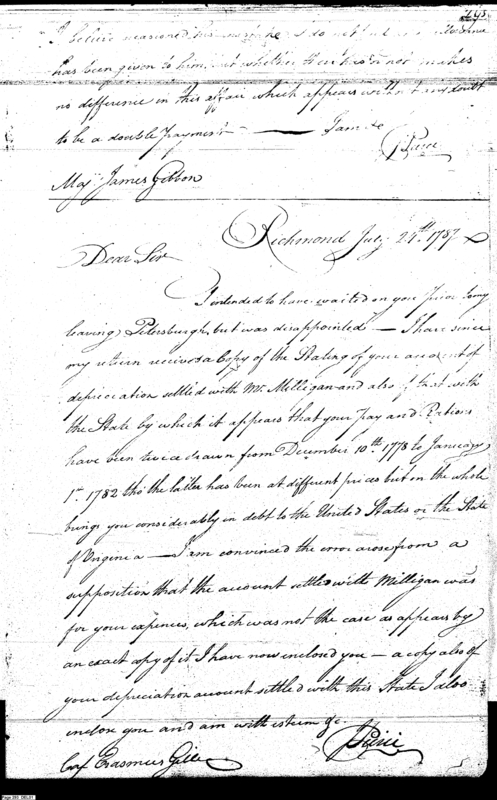 I believe
has been given to him, but whether then his or not makes
no difference in this affair which appears without any doubt
to be a double payment — I am &c
Pierce
Maj James Gibbon
Richmond July 24th 1787
Dear Sir
I intended to have waited on you prior to my
leaving Petersburgh, but was disappointed — I have since
my return received a Copy of the Stating of your account of
depreciation settled with Mr. Milligan and also of that with
the State by which it appears that your Pay and Rations
have been twice drawn from December 10th 1778 to January
1st 1782 tho the latter has been at different prices but on the whole
brings you considerably in debt to the United States or the State
of Virginia — I am convinced the error arose from a
supposition that the account settled with Milligan was
for your expences, which was not the case as appears by
an exact copy of it I have now inclosed you — a copy also of
your depreciation account settled with this State I also
inclose you and am with esteem &c.
Pierce
Erasmus Gill